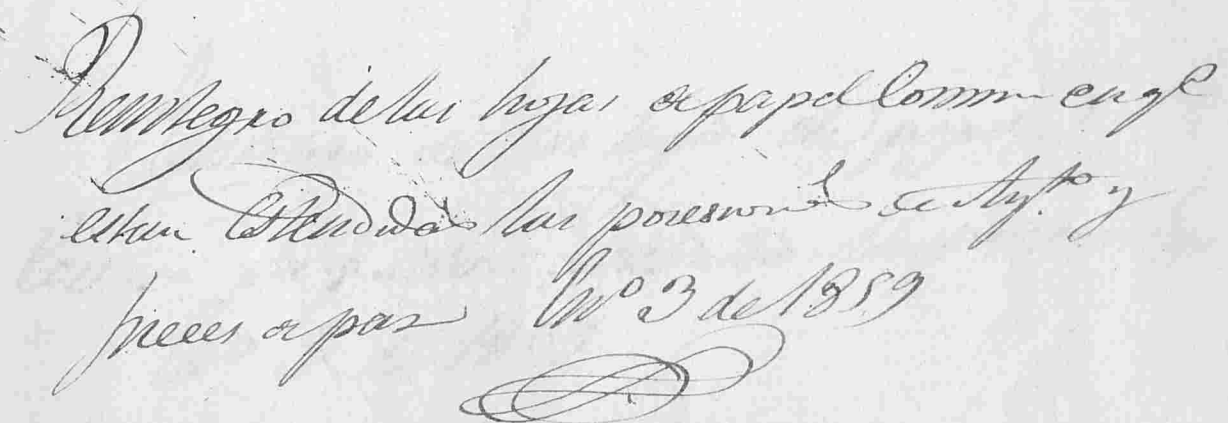 Reintegro de las hojas de papel Comun en q.e
estan Estendidas las posesiones de Ay.to y
Jueces de paz En.o 3 de 1859